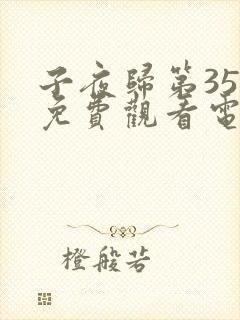 子夜歸第35
免費觀看電
橙般若